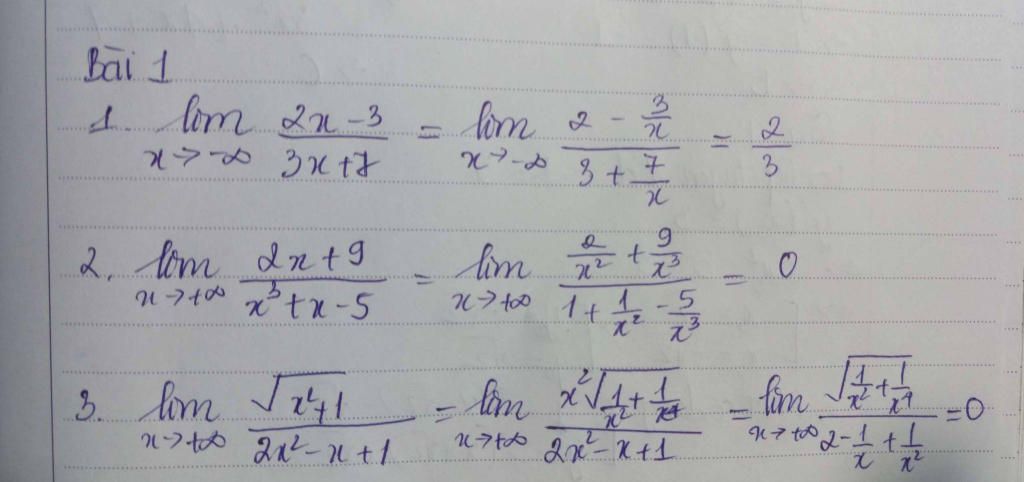 Bài 1
1. lim x→-∞ (2x-3)/(3x+7) = lim x→-∞ (2 - 3/x)/(3 + 7/x) = 2/3
2. lim x→+∞ (2x+9)/(x³+x-5) = lim x→+∞ (2/x² + 9/x³)/(1 + 1/x² - 5/x³) = 0
3. lim x→+∞ √(x²+1)/(2x²-x+1) = lim x→+∞ x²√(1/x² + 1/x⁴)/(2x²-x+1) = lim x→+∞ √(1/x² + 1/x⁴)/(2 - 1/x + 1/x²) = 0